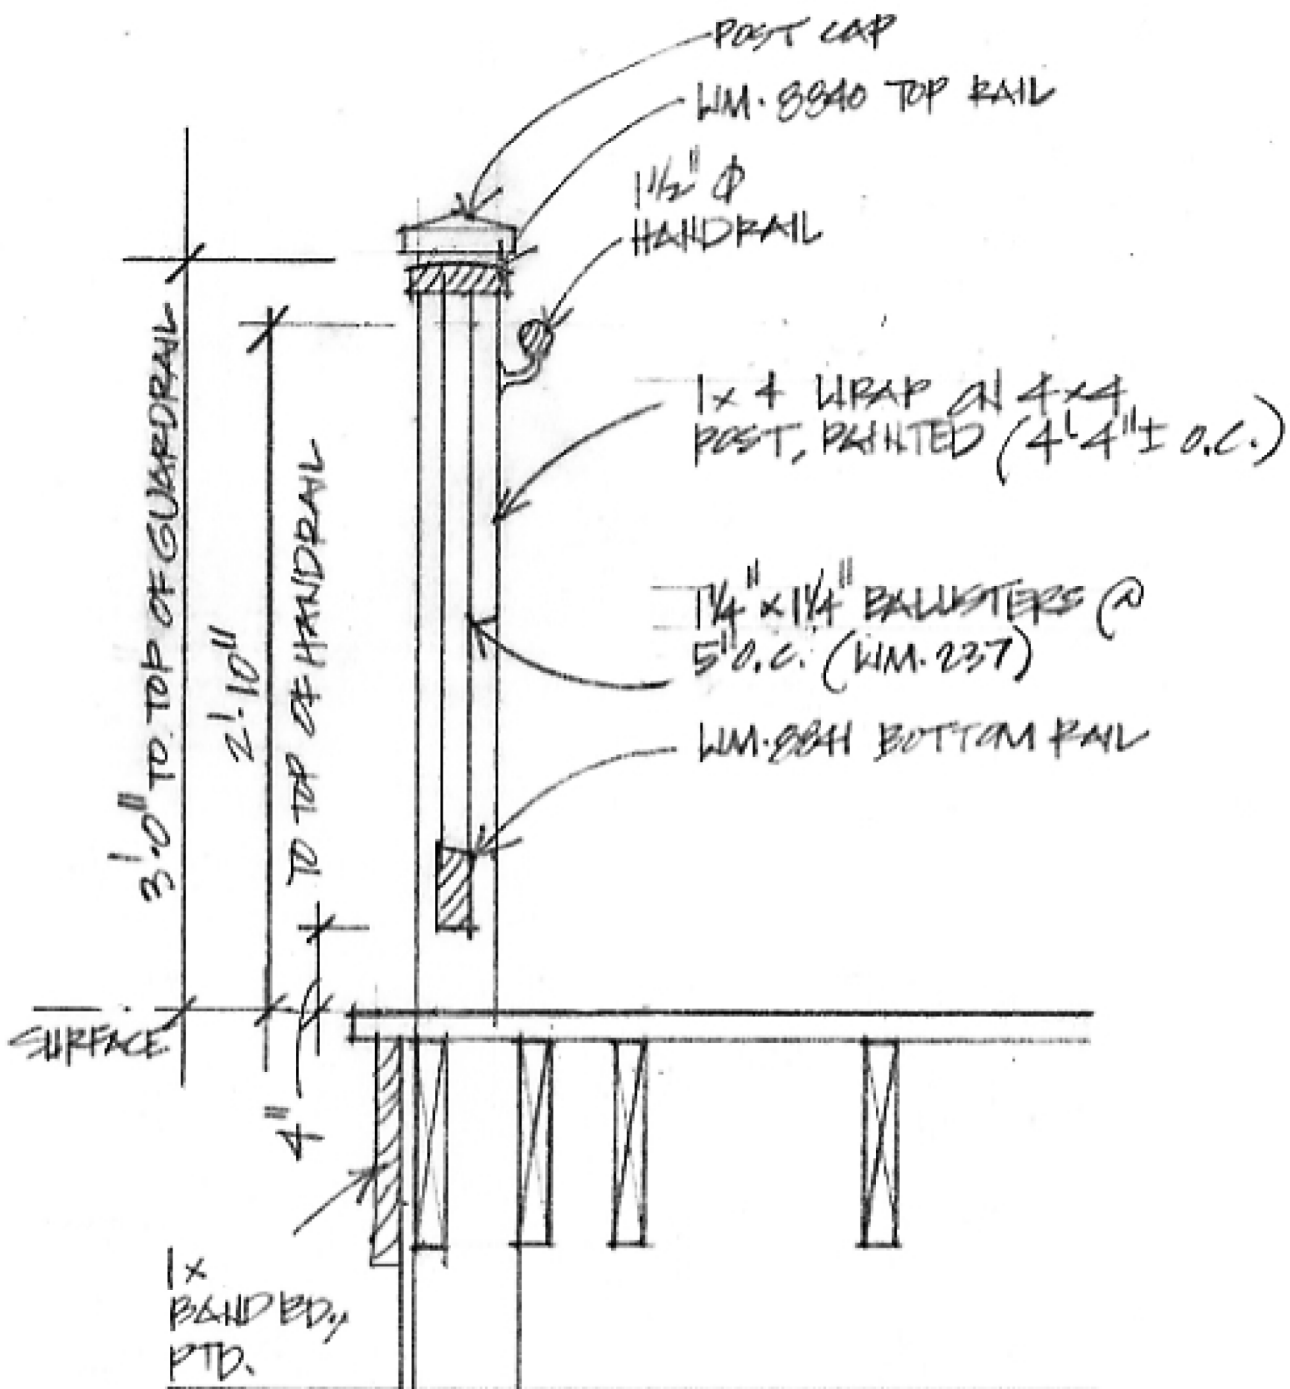 POST CAP
WM·8840 TOP RAIL
1 1/2" Φ
HANDRAIL
1x4 WRAP ON 4x4
POST, PAINTED (4'4"± O.C.)
1 1/4" x 1 1/4" BALUSTERS @
5" O.C. (WM·237)
WM·8841 BOTTOM RAIL
3'·0" TO TOP OF GUARDRAIL
2'·10"
TO TOP OF HANDRAIL
SURFACE
4"
1x
BAND BD.,
PTD.